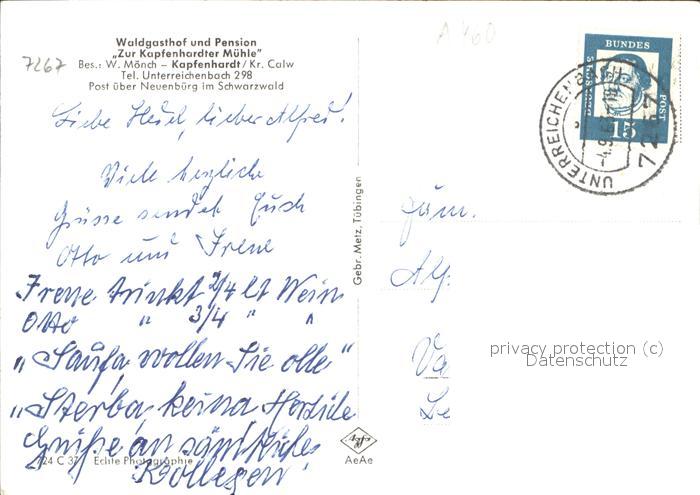 Waldgasthof und Pension
„Zur Kapfenhardter Mühle"
Bes.: W. Mönch – Kapfenhardt/Kr. Calw
Tel. Unterreichenbach 298
Post über Neuenbürg im Schwarzwald
7267
A 460
BUNDES
POST
15
UNTERREICHENBACH
7267
Liebe lieber Alfred!
Viele herzliche
Grüsse sendet Euch
Otto und Irene
Irene trinkt 2/4 lt Wein
Otto " 3/4 " "
„Saufa wollen Sie olle"
„Sterba keina Herzliche
Grüße an sämtliche
Kollegen
Gebr. Metz, Tübingen
724 C 37 Echte Photographie
AeAe
Fam.
Alf
Va
privacy protection (c)
Datenschutz